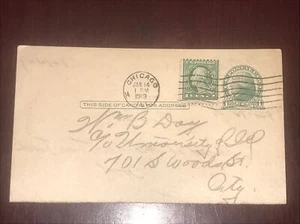 CHICAGO
JAN 14
1 PM
1919
ILL.
THIS SIDE OF CARD IS FOR ADDRESS
Wm B Day
c/o University of Ill
701 S Wood St.
City.